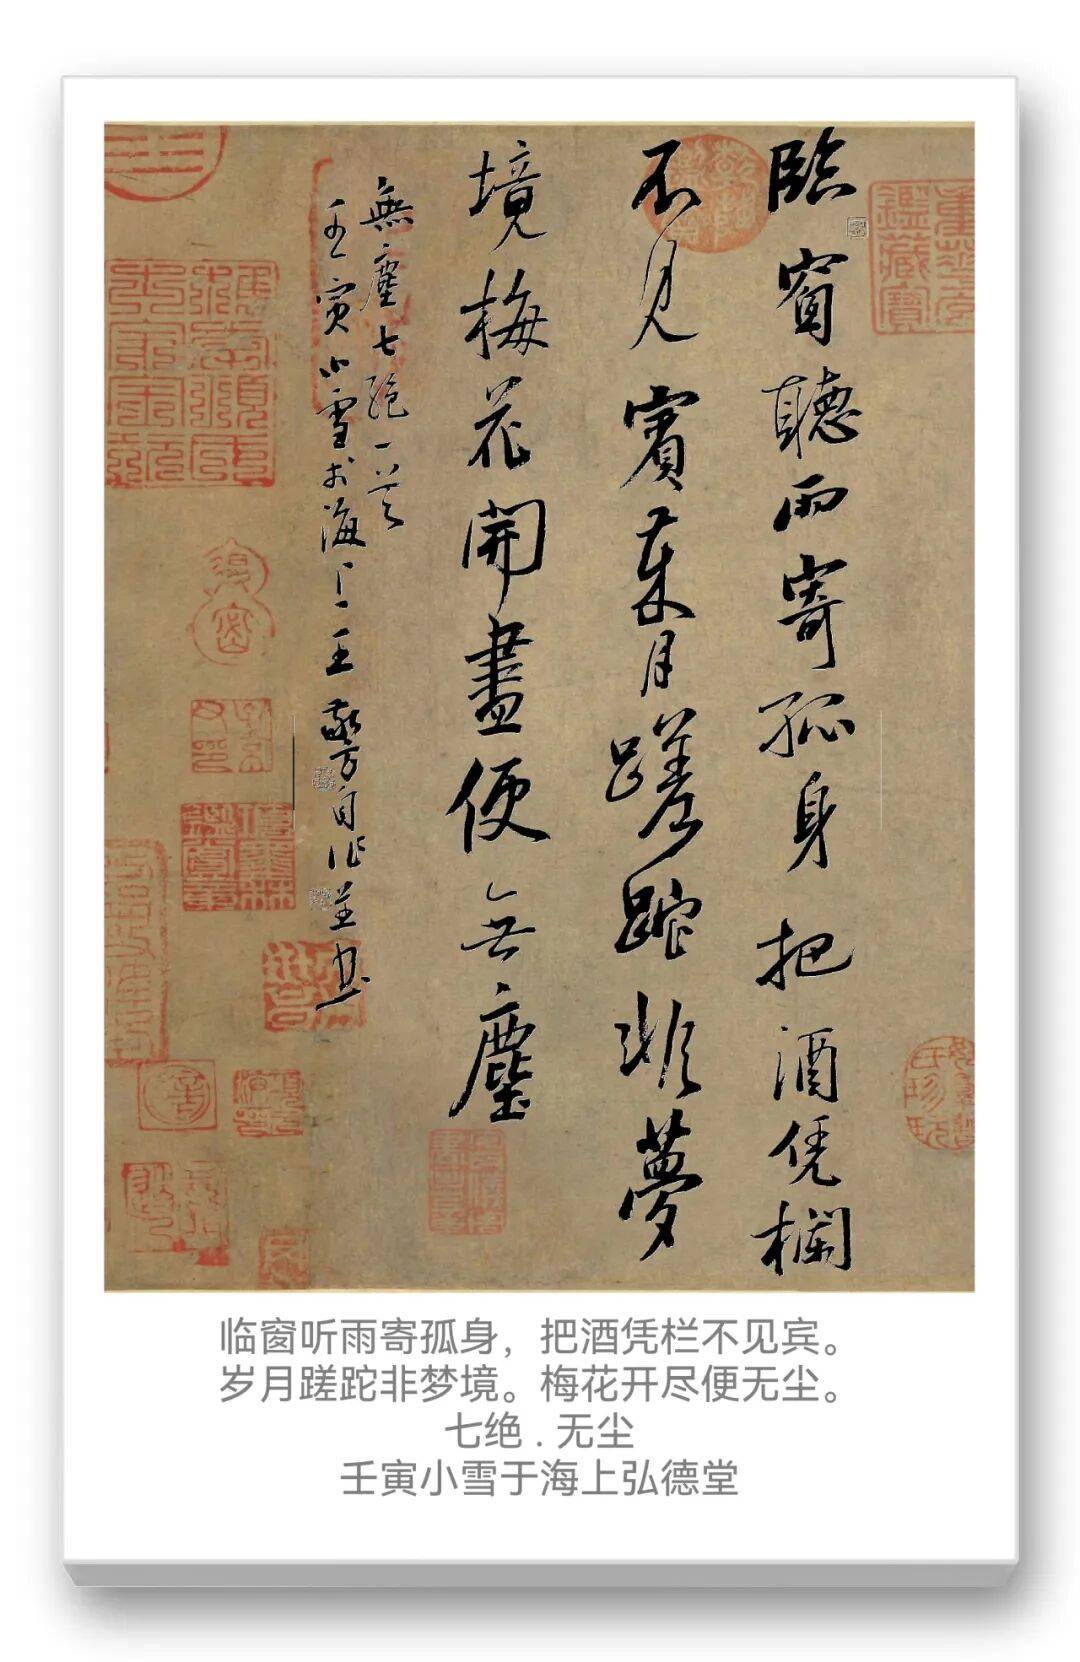 臨窗聽雨寄孤身把酒凭欄
不見賓歲月蹉跎非夢
境梅花開盡便无塵
無塵七絕一首
壬寅小雪於海上王警自作並書
临窗听雨寄孤身，把酒凭栏不见宾。
岁月蹉跎非梦境。梅花开尽便无尘。
七绝 . 无尘
壬寅小雪于海上弘德堂